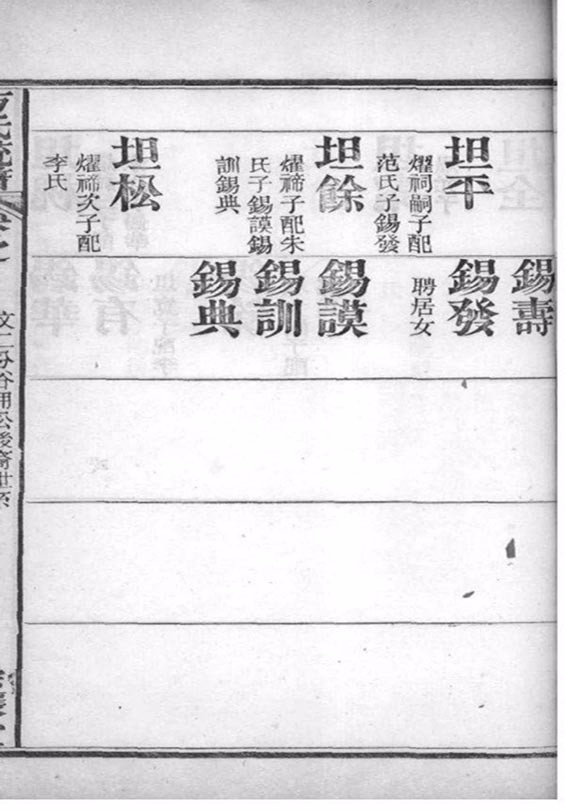 坦平
燿祠嗣子配
范氏子錫發
坦餘
燿禘子配朱
氏子錫謨錫
訓錫典
坦松
燿禘次子配
李氏
錫壽
錫發
聘居女
錫謨
錫訓
錫典